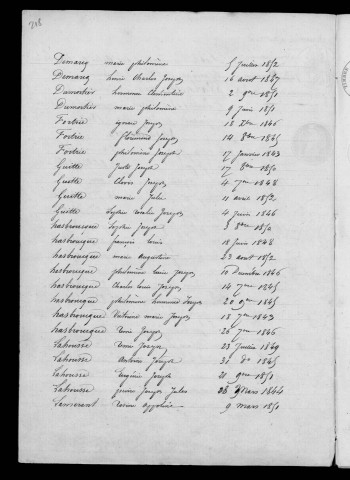 218
Demarcq marie philomène 5 Juillet 1852
Demang Louis Charles Joseph 16 avril 1847
Dumortier hermance Clémentine 2 9bre 1850
Dumortier marie philomène 9 Juin 1850
Fortrie ignace Joseph 18 Xbre 1846
Fortrie florimond Joseph 14 8bre 1845
Fortrie philomène Joseph 17 Janvier 1843
Guette Jude Joseph 17 8bre 1850
Guette Clovis Joseph 4 7bre 1848
Guette marie Julie 11 avril 1852
Guette Sophie Rosalie Joseph 4 Juin 1846
hasbroucque Sophie Joseph 3 8bre 1850
hasbroucque francois Louis 18 Juin 1848
hasbroucque marie augustine 23 aout 1852
hasbroucque philomène Joseph 10 Decembre 1846
hasbroucque Charles Louis Joseph 14 7bre 1845
hasbroucque philomène hermance Joseph 20 9bre 1845
hasbroucque marie Joseph 18 7bre 1843
hasbroucque Joseph 26 7bre 1846
Lahousse Joseph 23 Juillet 1849
Lahousse Antoine Joseph 31 Xbre 1845
Lahousse Eugénie Joseph 21 9bre 1851
Lahousse Joseph Jules 28 Mars 1844
Lemerant Rosine appoline 9 mars 1850